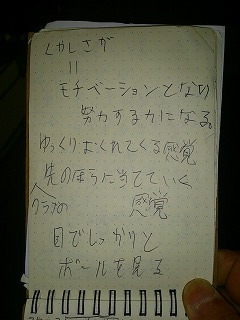 くやしさが
=
モチベーションとなり
努力する力になる。
ゆっくりおくれてくる感覚
先のほうに当てていく
クラブの 感覚
目でしっかりと
ボールを見る